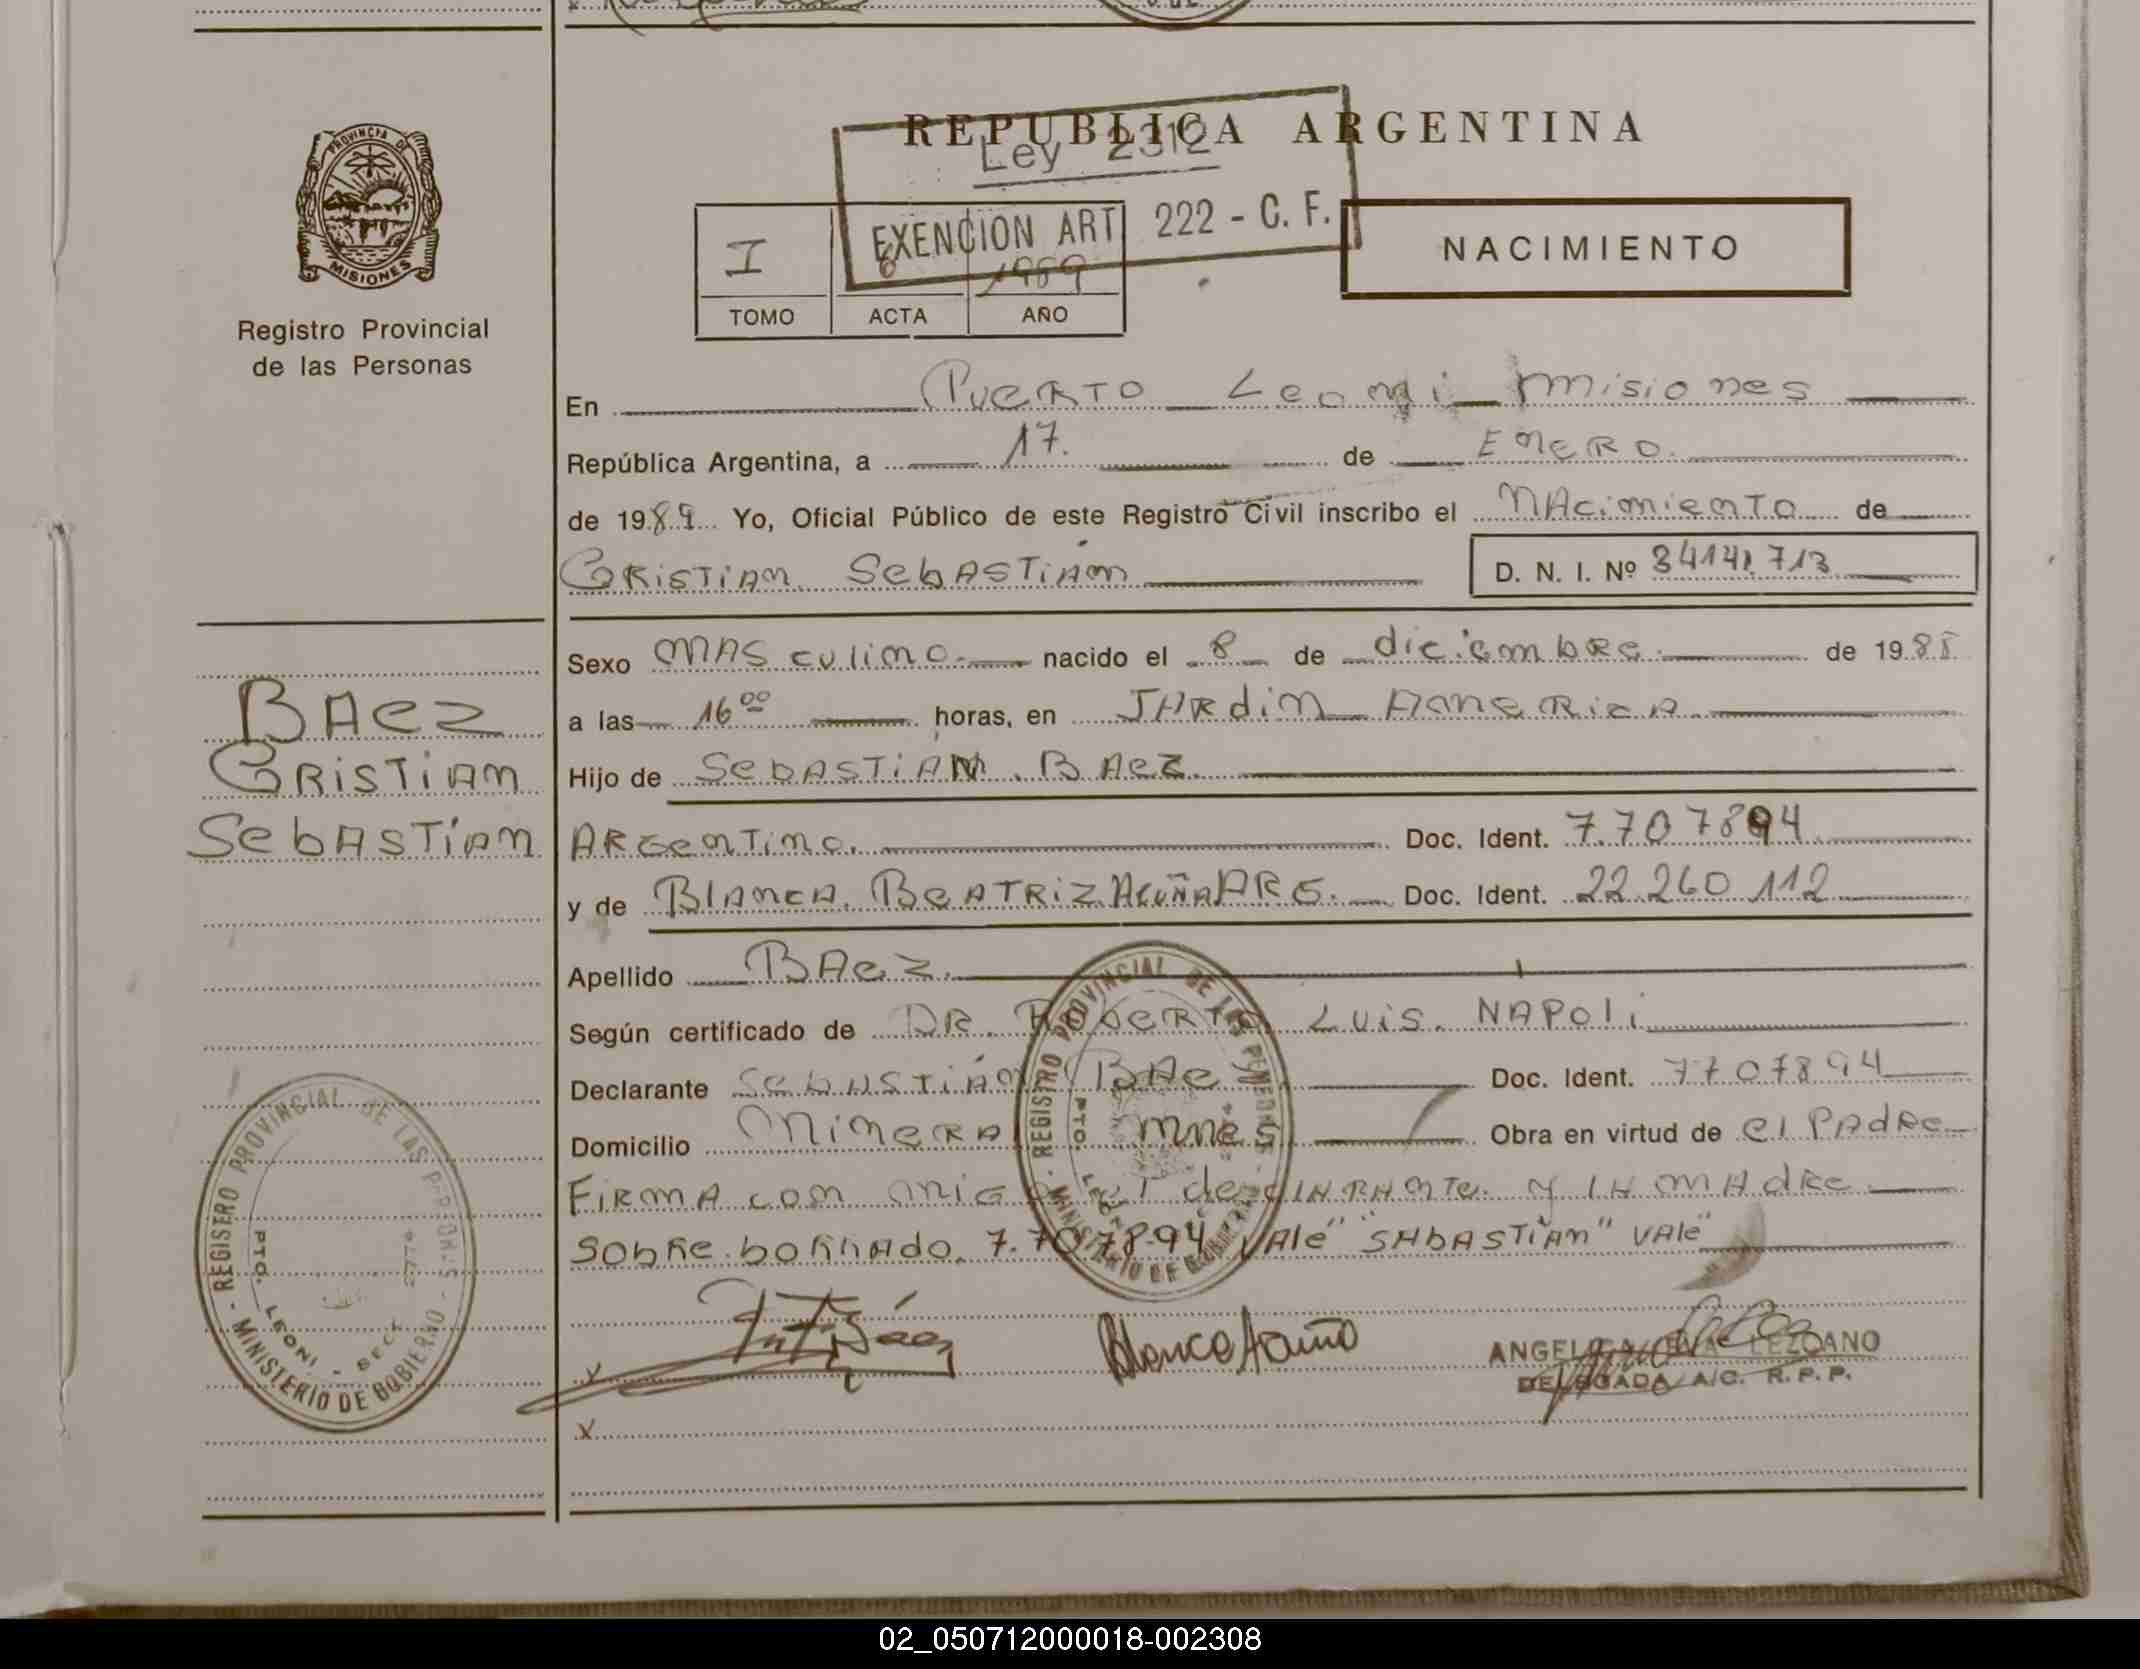 PROVINCIA DE
MISIONES
Registro Provincial
de las Personas
REPUBLICA ARGENTINA
Ley 2312
EXENCION ART 222 - C. F.
NACIMIENTO
I 6 1989
TOMO ACTA AÑO
En Puerto Leoni Misiones
República Argentina, a 17. de Enero.
de 1989 Yo, Oficial Público de este Registro Civil inscribo el Nacimiento de
Cristian Sebastian D. N. I. Nº 34141.713
Sexo Masculino. nacido el 8 de diciembre. de 1988
a las 16 00 horas, en Jardin America.
Hijo de Sebastian Baez.
Argentino. Doc. Ident. 7.707894
y de Blanca Beatriz Acuña Arg. Doc. Ident. 22.260.112
Apellido Baez.
Según certificado de Dr. Roberto Luis Napoli
Declarante Sebastian Baez Doc. Ident. 7707894
Domicilio Oninera mnes Obra en virtud de el Padre
Firma con migo el declarante y la madre.
Sobre borrado. 7.707894 Vale "Sabastian" Vale"
Blanca Acuña
ANGELICA LEZCANO
DELEGADA A/C. R. P. P.
x
Baez
Cristian
Sebastian
REGISTRO PROVINCIAL DE LAS PERSONAS
MINISTERIO DE GOBIERNO
PTO. LEONI - SECT
REGISTRO PROVINCIAL DE LAS PERSONAS
MINISTERIO DE GOBIERNO
PTO. LEONI
02_050712000018-002308